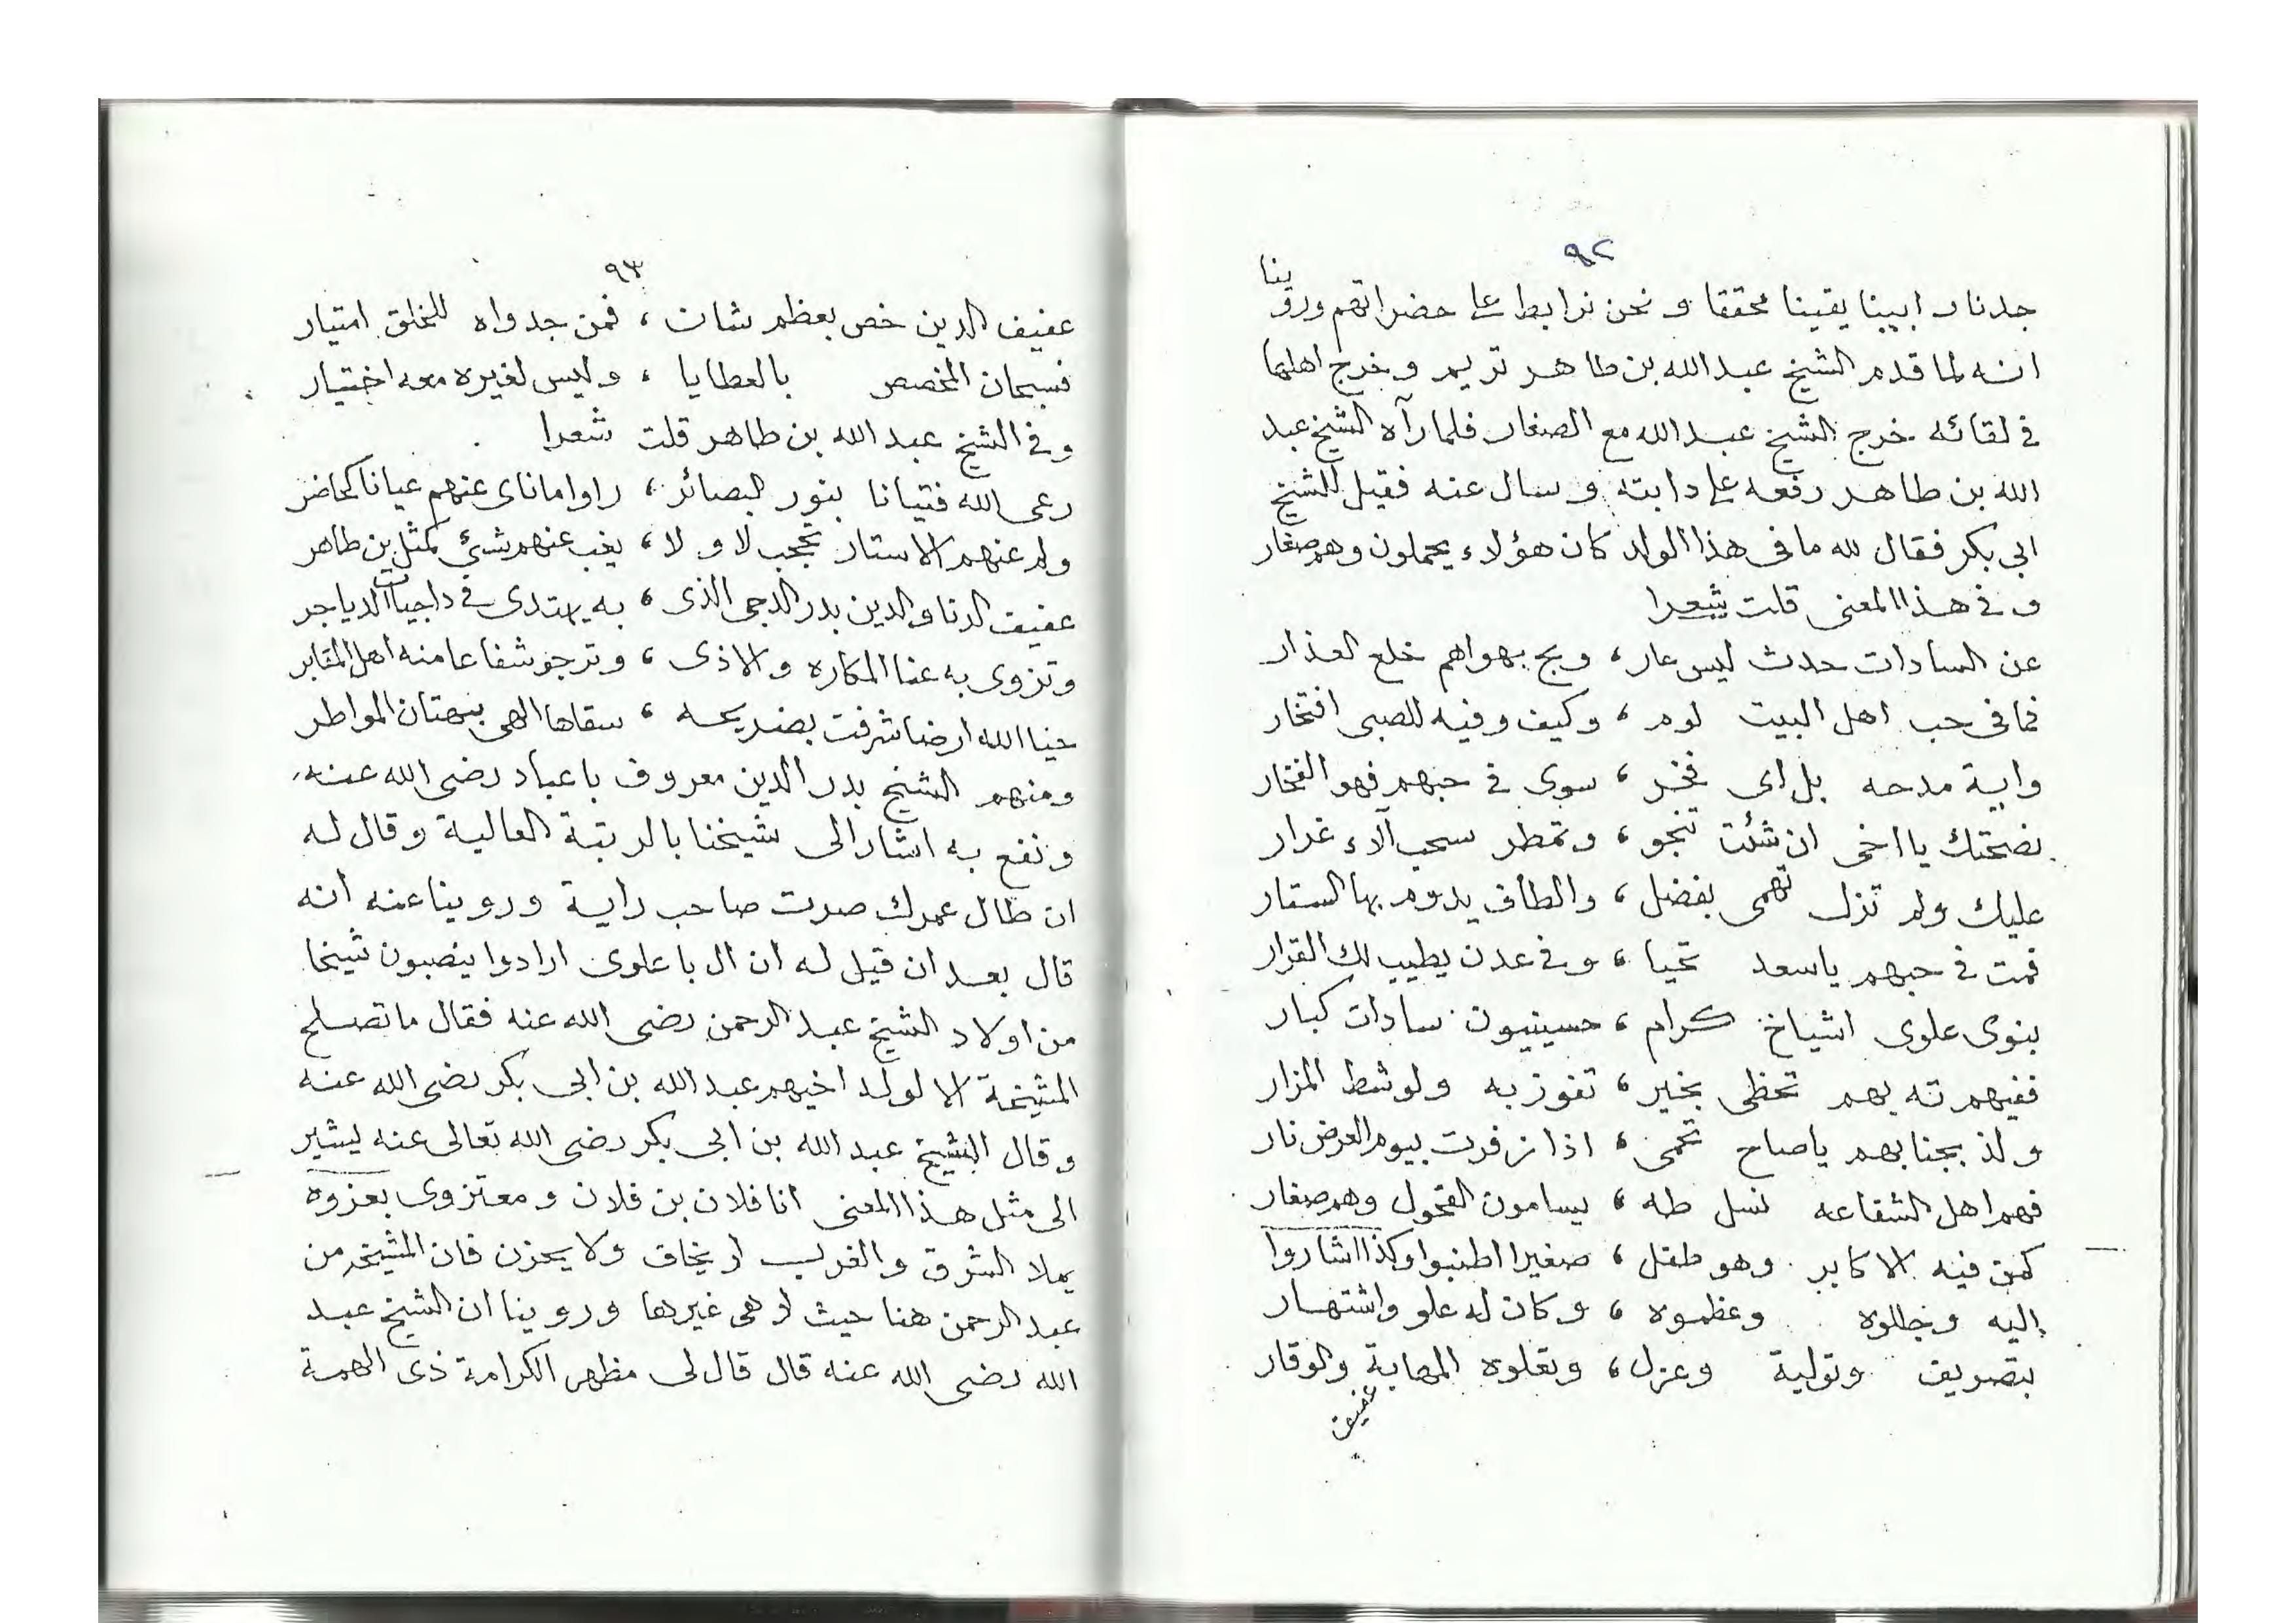 ٩٢
جدنا و ابينا يقينا محققا و نحن نرابط على حضراتهم وروينا
انه لما قدم الشيخ عبد الله بن طاهر تريم وخرج اهلها
في لقائه خرج الشيخ عبد الله مع الصغار فلما رآه الشيخ عبد
الله بن طاهر رفعه على دابته وسال عنه فقيل للشيخ
ابي بكر فقال لله ما في هذا الولد كان هؤلاء يحملون وهم صغار
و في هذا المعنى قلت شعرا
عن السادات حدث ليس عار، وبح بهواهم خلع العذار
فما في حب اهل البيت لوم، وكيف وفيه للصبى افتخار
واية مدحه بل اى فخر، سوى في حبهم فهو الفخار
نصحتك يا اخى ان شئت تنجو، وتمطر سحب آلاء غزار
عليك ولم تزل تهمى بفضل، والطاف يدوم بها الستار
فمت في حبهم ياسعد تحيا، وفي عدن يطيب لك القرار
بنوى علوى اشياخ كرام، حسينيون سادات كبار
ففيهم ته بهم تحظى بخير، تفوز به ولو شط المزار
ولذ بجنابهم ياصاح تحمى، اذا زفرت بيوم العرض نار
فهم اهل الشفاعه نسل طه، يسامون الفحول وهم صغار
كمن فيه الاكابر وهو طفل، صغيرا اطنبوا وكذا اشاروا
اليه وجللوه وعظموه، وكان له علو واشتهار
بتصريف وتولية وعزل، وتعلوه المهابة والوقار
عفيف
٩٣
عفيف الدين خص بعظم شان، فمن جدواه للخلق امتيار
فسبحان المخصص بالعطايا، وليس لغيره معه اختيار
وفي الشيخ عبد الله بن طاهر قلت شعرا
رعى الله فتيانا بنور البصائر، راوا ماناى عنهم عيانا كحاضر
ولم عنهم الاستار تحجب لا ولا، يغب عنهم شيئ كمثل بن طاهر
عفيف الدنا والدين بدر الدجى الذى، به يهتدى في داجيات الدياجر
وتزوى به عنا المكاره والاذى، وترجو شفاعا منه اهل المقابر
حيا الله ارضا شرفت بضريحه، سقاها الهى بهتان المواطر
ومنهم الشيخ بدر الدين معروف باعباد رضى الله عنه
ونفع به اشار الى شيخنا بالرتبة العالية وقال له
ان طال عمرك صرت صاحب راية وروينا عنه انه
قال بعد ان قيل له ان ال باعلوى ارادوا ينصبون شيخا
من اولاد الشيخ عبد الرحمن رضى الله عنه فقال ما تصلح
المشيخة الا لولد اخيهم عبد الله بن ابى بكر رضى الله عنه
وقال الشيخ عبد الله بن ابى بكر رضى الله تعالى عنه ليشير
الى مثل هذا المعنى انا فلان بن فلان ومعتزوى بعزوه
يملا الشرق والغرب لا يخاف ولا يحزن فان المشيخه من
عبد الرحمن هنا حيث لا هى غيرها وروينا ان الشيخ عبد
الله رضى الله عنه قال قال لى مظهر الكرامة ذى الهمة